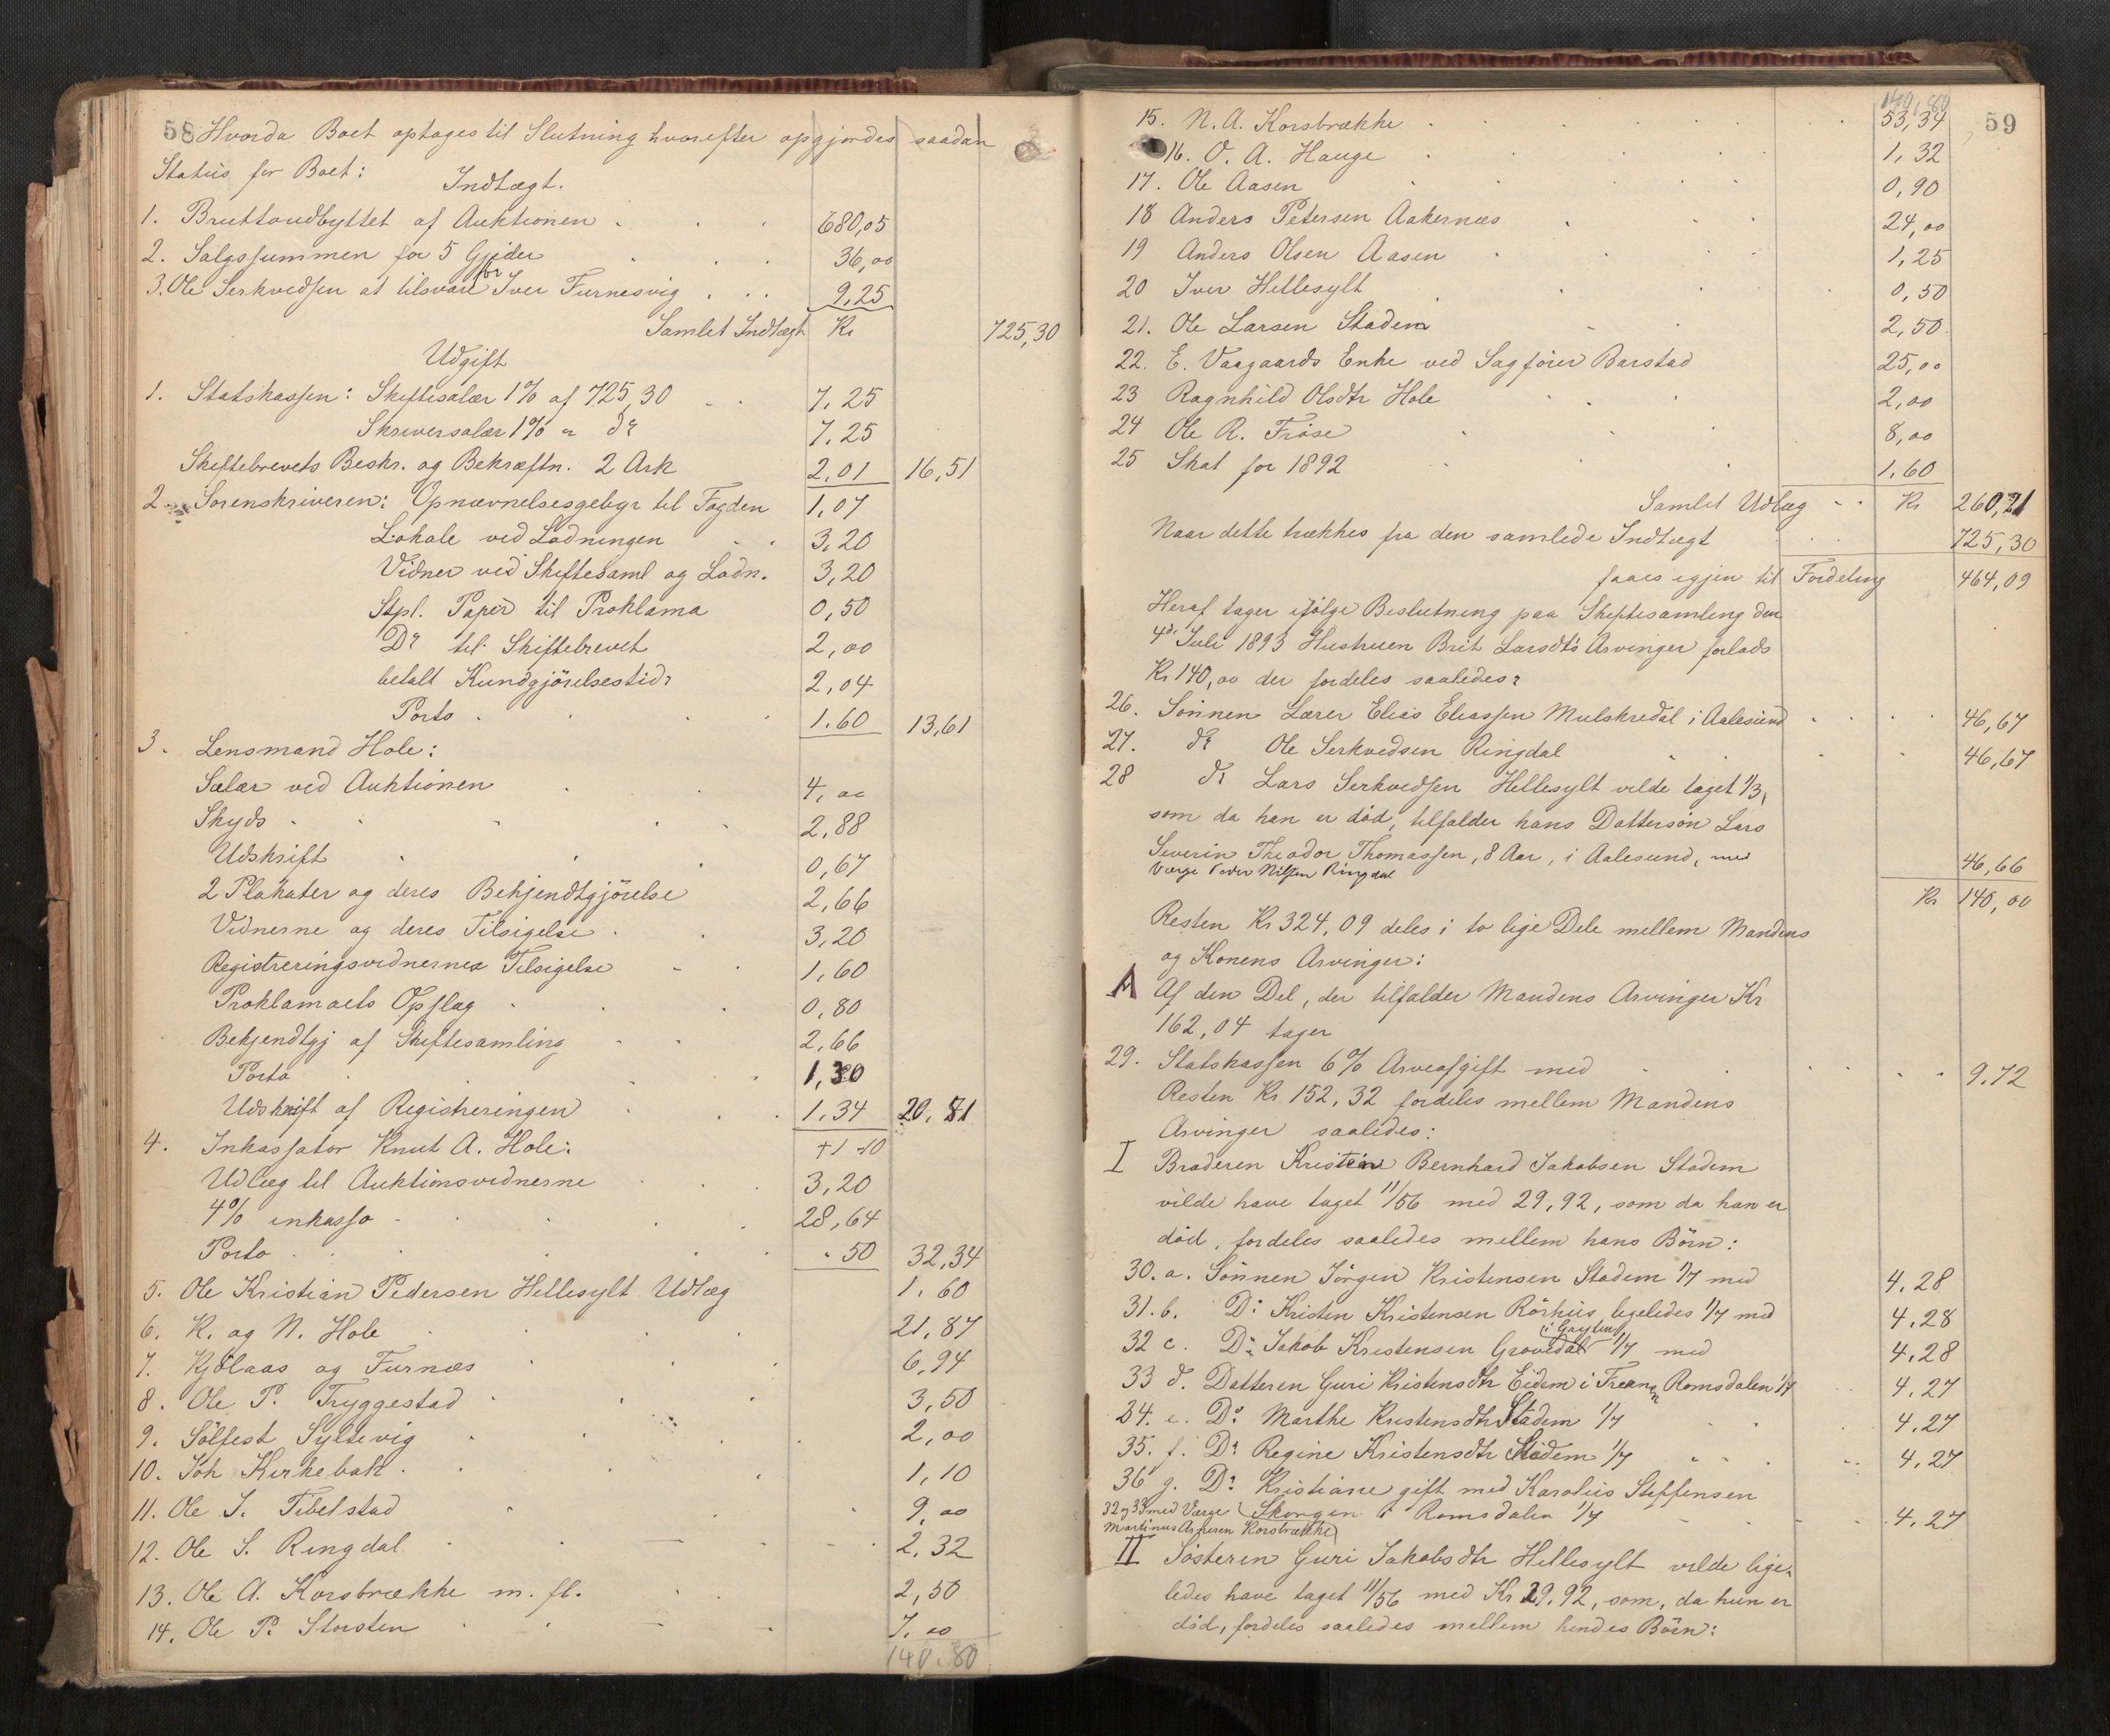 58
Hvorda Boet optages til Slutning hvorefter opgjordes saadan
Status for Boet:
Indtægt.
1. Bruttoudbyttet af Auktionen 680,05
2. Salgssummen for 5 Gjeder 36,00
3. Ole Serkvedsen at tilsvare for Iver Furnesvig 9,25
Samlet Indtægt Kr 725,30
Udgift
1. Statskassen: Skiftesalær 1% af 725,30 7,25
Skriversalær 1% " do 7,25
Skiftebrevets Beskr. og Bekræftn. 2 Ark 2,01 16,51
2. Sorenskriveren: Opnævnelsesgebyr til Fogden 1,07
Lokale ved Lodningen 3,20
Vidner ved Skiftesaml og Lodn. 3,20
Stpl. Papir til Proklama 0,50
Do til Skiftebrevet 2,00
betalt Kundgjörelsestid: 2,04
Porto 1.60 13,61
3. Lensmand Hole:
Salær ved Auktionen 4,00
Skyds 2,88
Udskrift 0,67
2 Plakater og deres Bekjendtgjörelse 2,66
Vidnerne og deres Tilsigelse 3,20
Registreringsvidnernes Tilsigelse 1,60
Proklamaets Opslag 0,80
Bekjendtgj af Skiftesamling 2,66
Porto 1,30
Udskrift af Registreringen 1,34 20,81
4. Inkassator Knut A. Hole:
Udlæg til Auktionsvidnerne 3,20
4% inkasso 28,64
Porto " 50 32,34
5. Ole Kristian Pedersen Hellesylt Udlæg 1,60
6. K. og N. Hole 21,87
7. Kjölaas og Furnæs 6,94
8. Ole P. Tryggestad 3,50
9. Sölfest Syltevig 2,00
10. Joh Kirkebak 1,10
11. Ole J. Tibelstad 9,00
12. Ole S. Ringdal 2,32
13. Ole A. Korsbrække m. fl. 2,50
14. Ole P. Storsten 7,00
140.80
140,80
59
15. N. A. Korsbrække 53,34
16. O. A. Hauge 1,32
17. Ole Aasen 0,90
18 Anders Petersen Aakernæs 24,00
19 Anders Olsen Aasen 1,25
20 Iver Hellesylt 0,50
21. Ole Larsen Stadem 2,50
22. E. Vaagaards Enke ved Sagförer Barstad 25,00
23 Ragnhild Olsdtr Hole 2,00
24 Ole R. Fröse 8,00
25 Skat for 1892 1.60
Samlet Udlæg Kr 260,21
Naar dette trækkes fra den samlede Indtægt 725,30
faaes igjen til Fordeling 464,09
Heraf tager ifölge Beslutning paa Skiftesamling den
4de Juli 1893 Hustruen Brit Larsdts Arvinger forlods
Kr 140,00 der fordeles saaledes:
26. Sönnen Lærer Elias Eliassen Mulskredal i Aalesund 46,67
27. do Ole Serkvedsen Ringdal 46,67
28 do Lars Serkvedsen Hellesylt vilde taget 1/3,
som da han er död, tilfalder hans Dattersön Lars
Severin Theodor Thomassen, 8 Aar, i Aalesund, med
Værge Peder Nilsen Ringdal 46,66
Kr 140,00
Resten Kr 324,09 deles i to lige Dele mellem Mandens
og Konens Arvinger:
A Af den Del, der tilfalder Mandens Arvinger Kr
162,04 tager
29. Statskassen 6% Arveafgift med 9.72
Resten Kr 152,32 fordeles mellem Mandens
Arvinger saaledes:
I Broderen Kristen Bernhard Jakobsen Stadem
vilde have taget 11/56 med 29,92, som da han er
död, fordeles saaledes mellem hans Börn:
30. a. Sönnen Jörgen Kristensen Stadem 1/7 med 4.28
31. b. Do Kristen Kristensen Rörhus ligeledes 1/7 med 4.28
32 c. Do Jakob Kristensen Grovedal 1/7 med 4.28
33 d. Datteren Guri Kristensdtr Eidem i Fræna Romsdalen 1/7 4.27
34. e. Do Marthe Kristensdtr Stadem 1/7 4.27
35. f. Do Regine Kristensdtr Stadem 1/7 4.27
36 g. Do Kristiane gift med Karolus Steffensen
Skorgen i Romsdalen 1/7 4.27
32 og 33 med Værge
Martinus Korsbrække
II Sösteren Guri Jakobsdtr Hellesylt vilde lige-
ledes have taget 11/56 med Kr 29.92, som, da hun er
död, fordeles saaledes mellem hendes Börn: